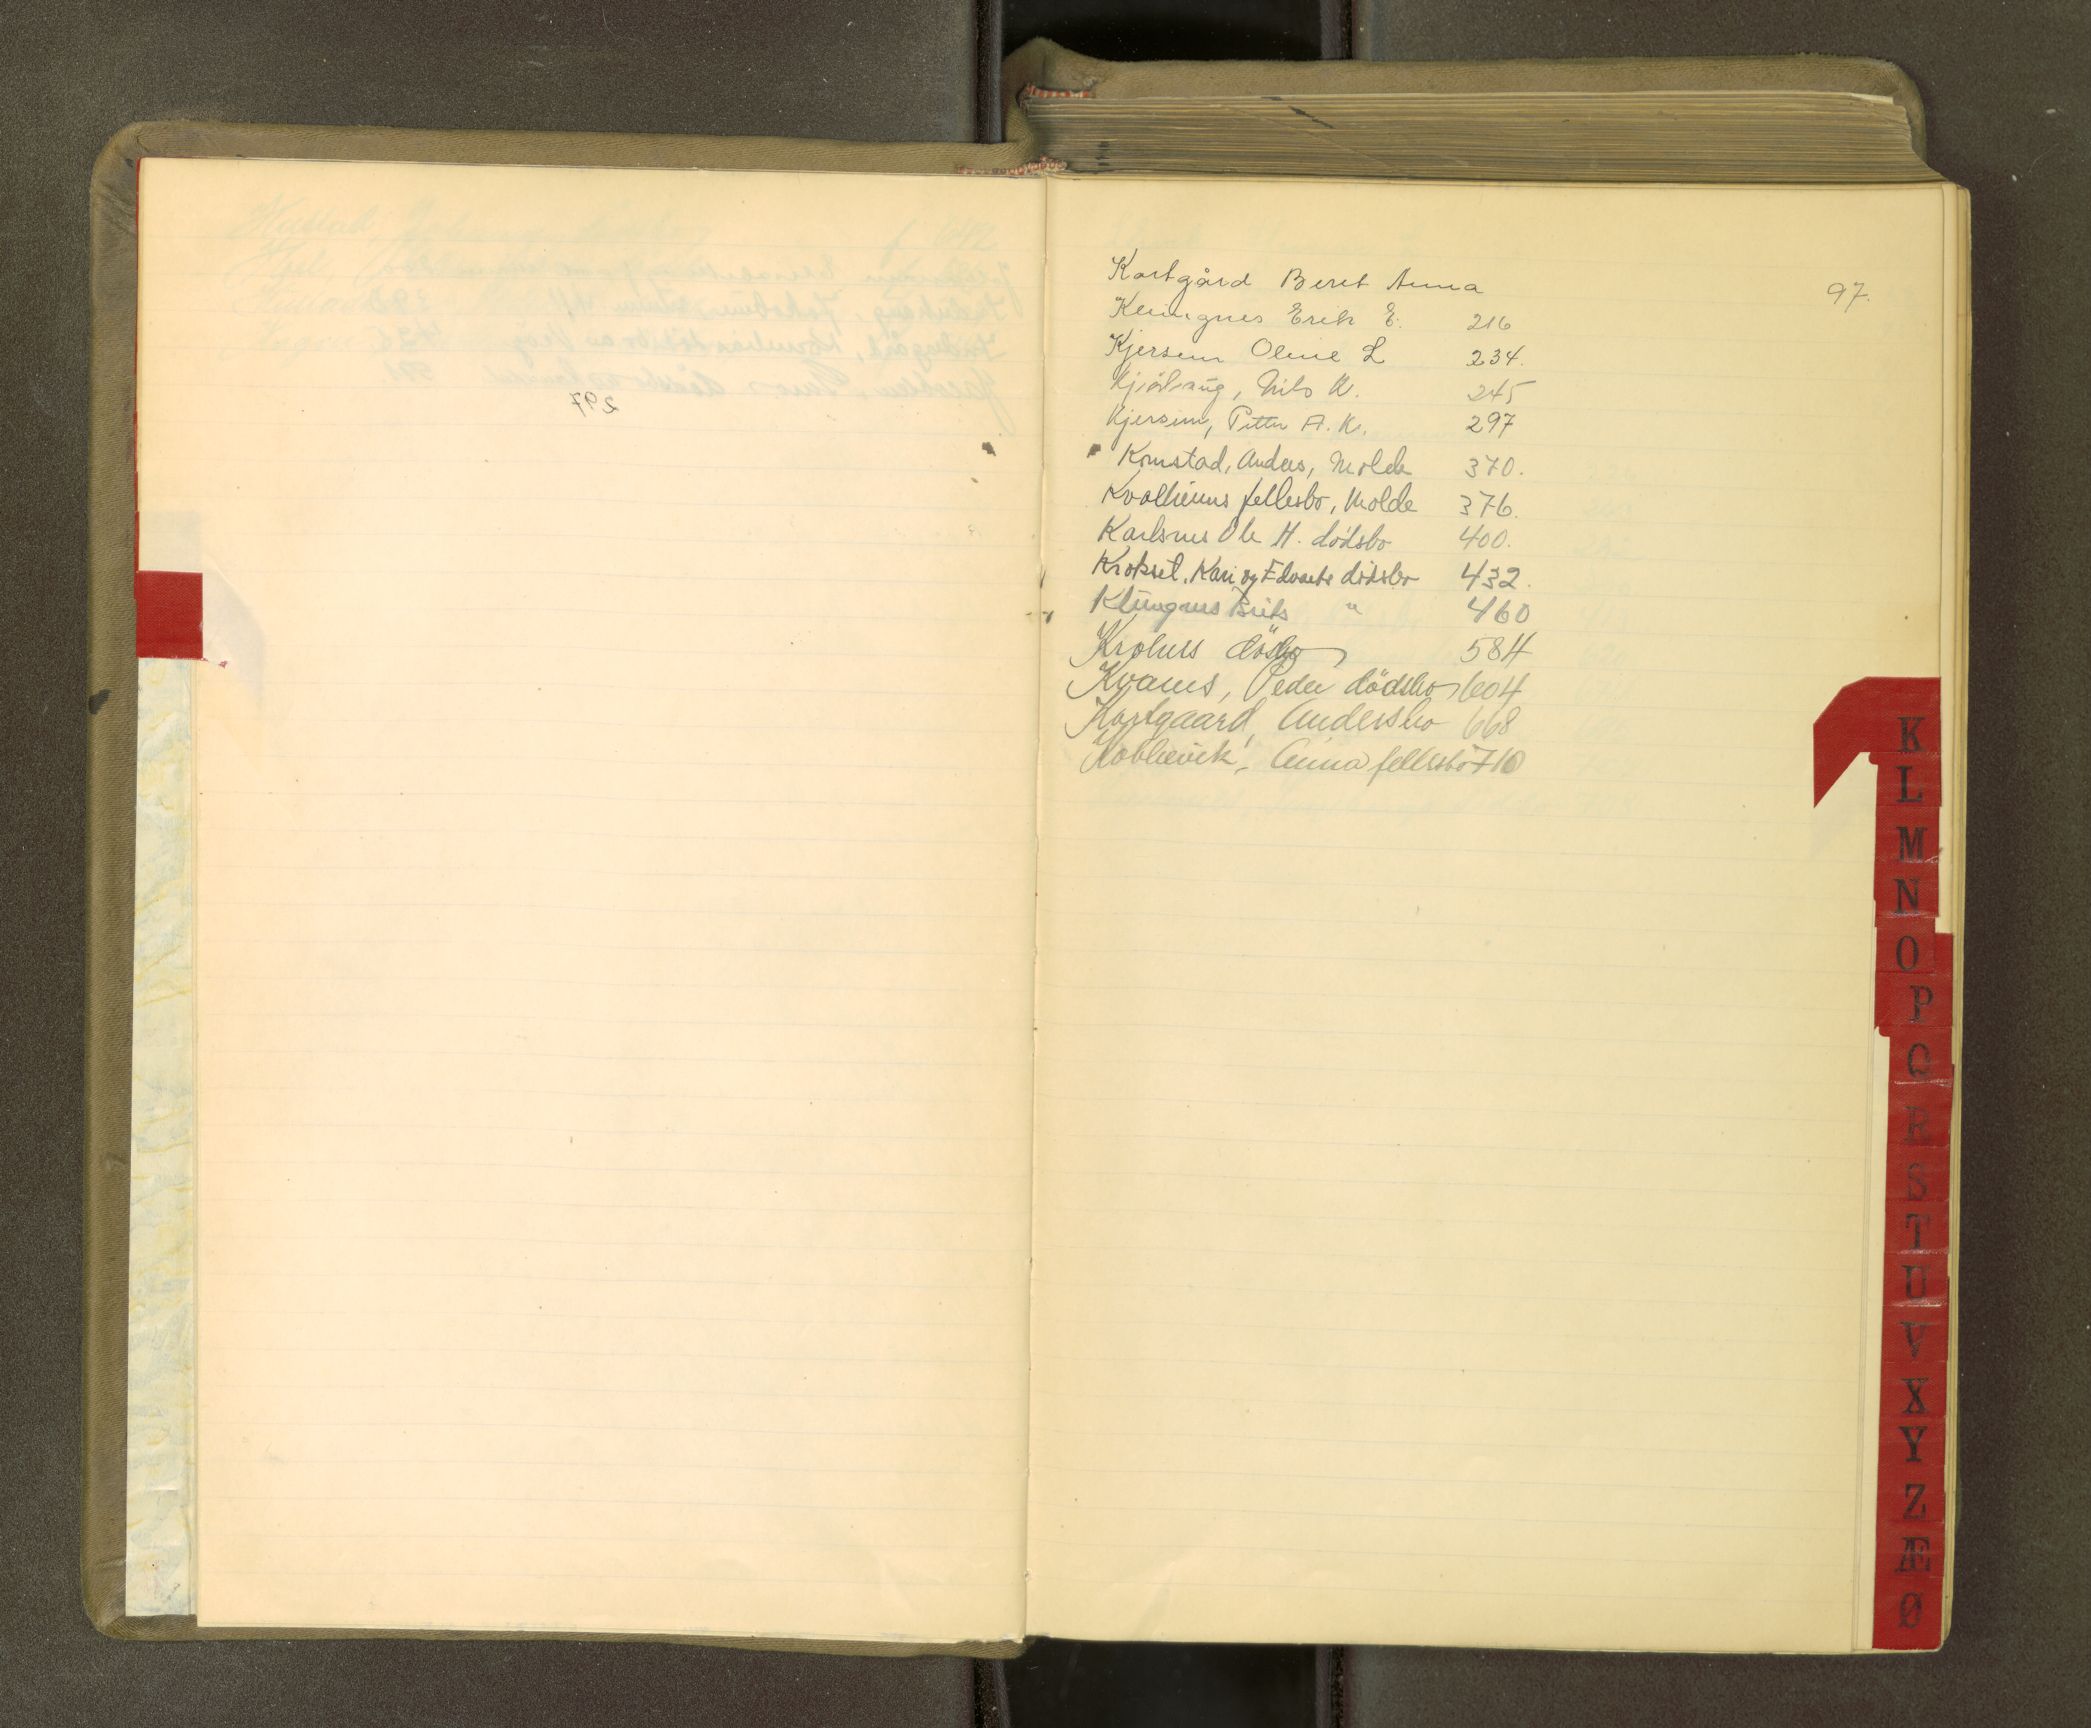 Kortgård Beret Anna 97.
Klungnes Erik E. 216
Kjersem Oline L 234.
Kjörhaug, Nils K. 245
Kjersem, Petter A. K. 297
Komstad, Anders, Molde 370.
Kvalheims fellesbo, Molde 376.
Karlsnes Ole H. dödsbo 400.
Krokset, Kari og Edvarts dödsbo 432.
Klungnes Brits " 460
dösbo 584
Kvarnes, Peder dödsbo 604
Kortgaard, Andersbo 668
Anna fellesbo 710
K
L
M
N
O
P
Q
R
S
T
U
V
X
Y
Z
Æ
Ø